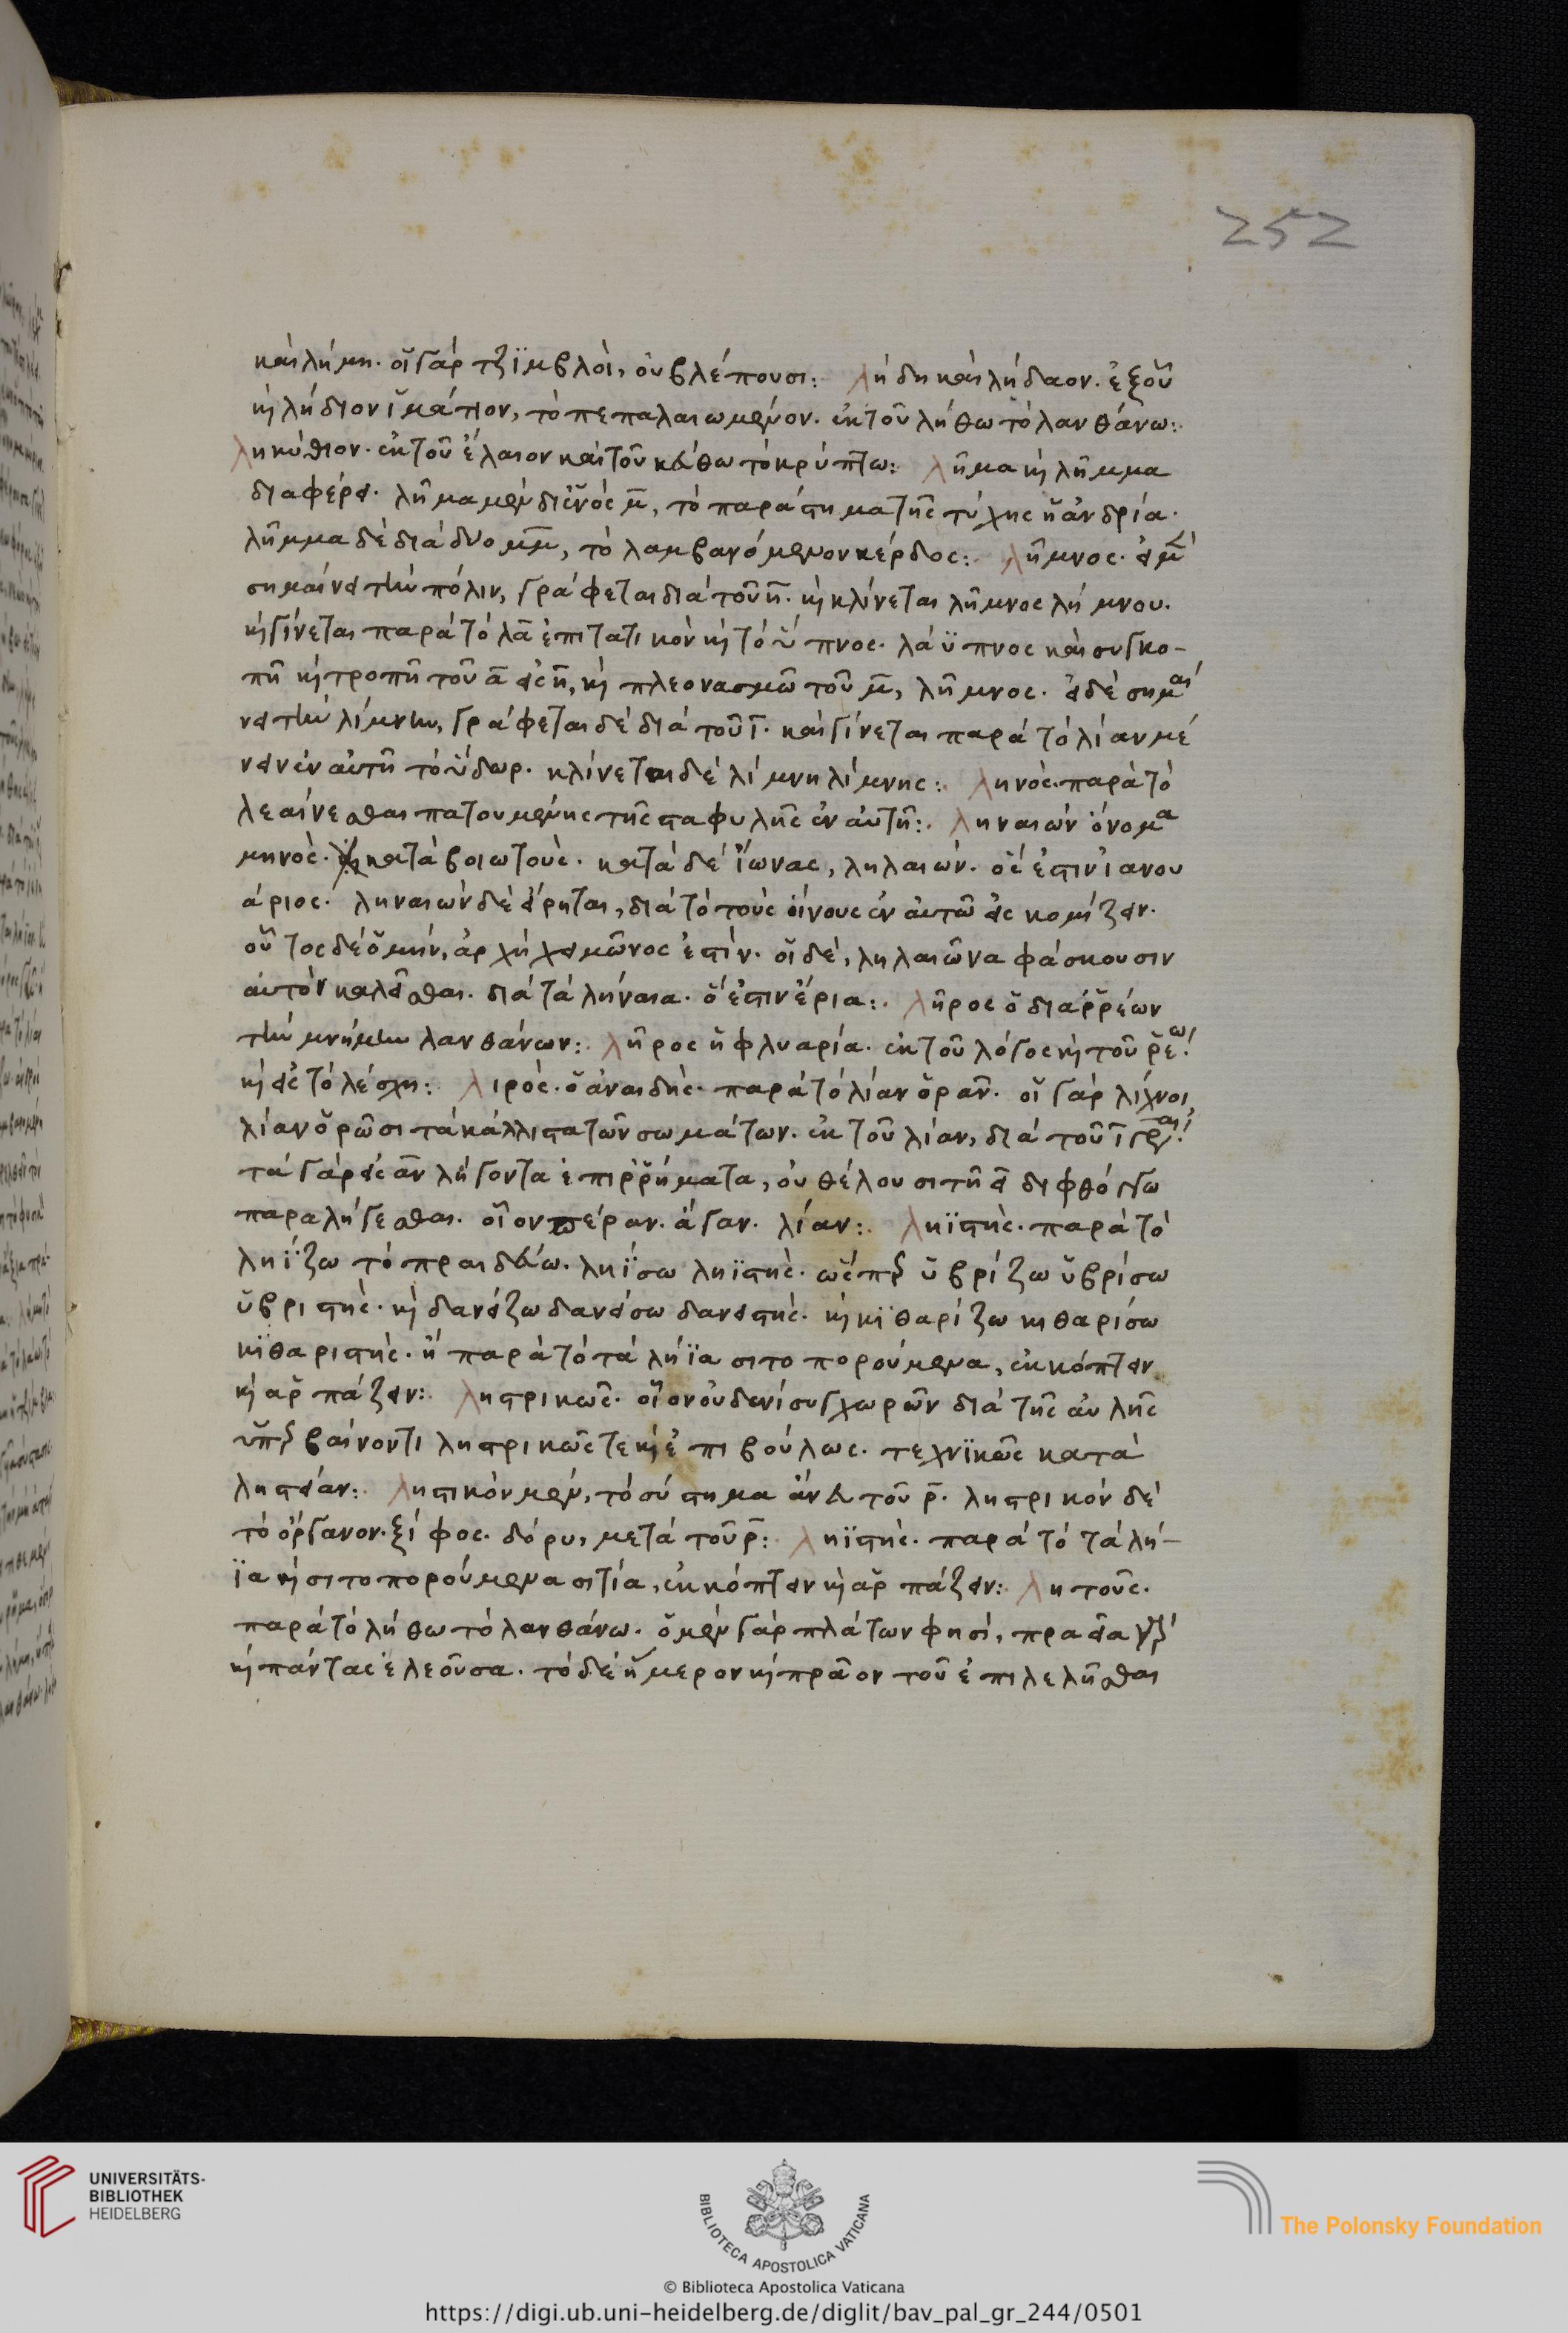 252
καὶ λήμη. οἱ γὰρ τζϊμβλοὶ, οὐ βλέπουσι: λήδη καὶ λήδαον. ἐξ οὗ
κ̀ λήδιον ἱμάτιον, τὸ πεπαλαιωμένον. ἐκ τοῦ λήθω τὸ λανθάνω:
ληκύθιον. ἐκ τοῦ ἔλαιον καὶ τοῦ κεύθω τὸ κρύπτω: λῆμα κ̀ λῆμμα
διαφέρει. λῆμα μὲν δι' ἑνὸς μ̅, τὸ παράστημα τῆς τύχης ἢ ἀνδρία.
λῆμμα δὲ διὰ δύο μ̅μ̅, τὸ λαμβανόμενον κέρδος: λῆμνος. εἰ μ̅
σημαίνει τὴν πόλιν, γράφεται διὰ τοῦ η̅. κ̀ κλίνεται λῆμνος λήμνου.
κ̀ γίνεται παρὰ τὸ λα̅ ἐπιτατικὸν κ̀ τὸ ὕπνος. λάϋπνος καὶ συγκο-
πῆ κ̀ τροπῆ τοῦ α̅ εἰς η̅, κ̀ πλεονασμῶ τοῦ μ̅, λῆμνος. εἰ δὲ σημαί
νει τὴν λίμνην, γράφεται δὲ διὰ τοῦ ι̅. καὶ γίνεται παρὰ τὸ λίαν μέ
νειν ἐν αὐτῆ τὸ ὕδωρ. κλίνεται δὲ λίμνη λίμνης: ληνὸς. παρὰ τὸ
λεαίνεσθαι πατουμένης τῆς σταφυλῆς ἐν αὐτῆ: ληναιών ὄνομα
μηνὸς. κατὰ βοιωτοὺς. κατὰ δὲ ἴωνας, ληλαιών. ὅ ἐστιν ἰανου
άριος. ληναιών δὲ εἴρηται, διὰ τὸ τοὺς οἴνους ἐν αὐτῶ εἰσκομίζειν.
οὗτος δὲ ὁ μὴν, ἀρχὴ χειμῶνος ἐστίν. οἱ δὲ, ληλαιῶνα φάσκουσιν
αὐτὸν καλεῖσθαι. διὰ τὰ λήναια. ὅ ἐστιν ἔρια: λῆρος ὁ διαῤῥέων
τὴν μνήμην λανθάνων: λῆρος ἡ φλυαρία. ἐκ τοῦ λόγος κ̀ τοῦ ῥέω.
κ̀ εἰς τὸ λέσχη: λιρὸς. ὁ ἀναιδὴς. παρὰ τὸ λίαν ὁρᾶν. οἱ γὰρ λίχνοι
λίαν ὁρῶσι τὰ κάλλιστα τῶν σωμάτων. ἐκ τοῦ λίαν, διὰ τοῦ ι̅
τὰ γὰρ εἰς αν̅ λήγοντα ἐπιῤῥήματα, οὐ θέλουσι τῆ ει̅ διφθόγγω
παραλήγεσθαι. οἷον πέραν. ἄγαν. λίαν: ληϊστὴς. παρὰ τὸ
ληΐζω τὸ πραιδεύω. ληΐσω ληϊστὴς. ὥσπερ ὑβρίζω ὑβρίσω
ὑβριστὴς. κ̀ δανείζω δανείσω δανειστὴς. κ̀ κϊθαρίζω κιθαρίσω
κϊθαριστὴς. ἢ παρὰ τὸ τὰ λήϊα σιτοπορούμενα, ἐκκόπτειν
κ̀ ἁρπάζειν: λῃστρικῶς. οἷον οὐδενὶ συγχωρῶν διὰ τῆς αὐλῆς
ὑπερβαίνοντι ληστρικῶς τε κ̀ ἐπιβούλως. τεχνϊκῶς κατὰ
λῃστείαν: ληστικὸν μὲν, τὸ σύστημα ἄνευ τοῦ ρ̅. ληστρικὸν δὲ
τὸ ὄργανον. ξίφος. δόρυ, μετὰ τοῦ ρ̅: ληϊστὴς. παρὰ τὸ τὰ λή-
ϊα κ̀ σιτοπορούμενα σιτία, ἐκκόπτειν κ̀ ἁρπάζειν: λητοῦς.
παρὰ τὸ λήθω τὸ λανθάνω. ὁ μὲν γὰρ πλάτων φησὶ, πραεῖα γὰρ
κ̀ πάντας ἐλεοῦσα. τὸ δὲ ἥμερον κ̀ πρᾶον τοῦ ἐπιλελῆσθαι
UNIVERSITÄTS-
BIBLIOTHEK
HEIDELBERG
BIBLIOTECA APOSTOLICA VATICANA
The Polonsky Foundation
© Biblioteca Apostolica Vaticana
https://digi.ub.uni-heidelberg.de/diglit/bav_pal_gr_244/0501